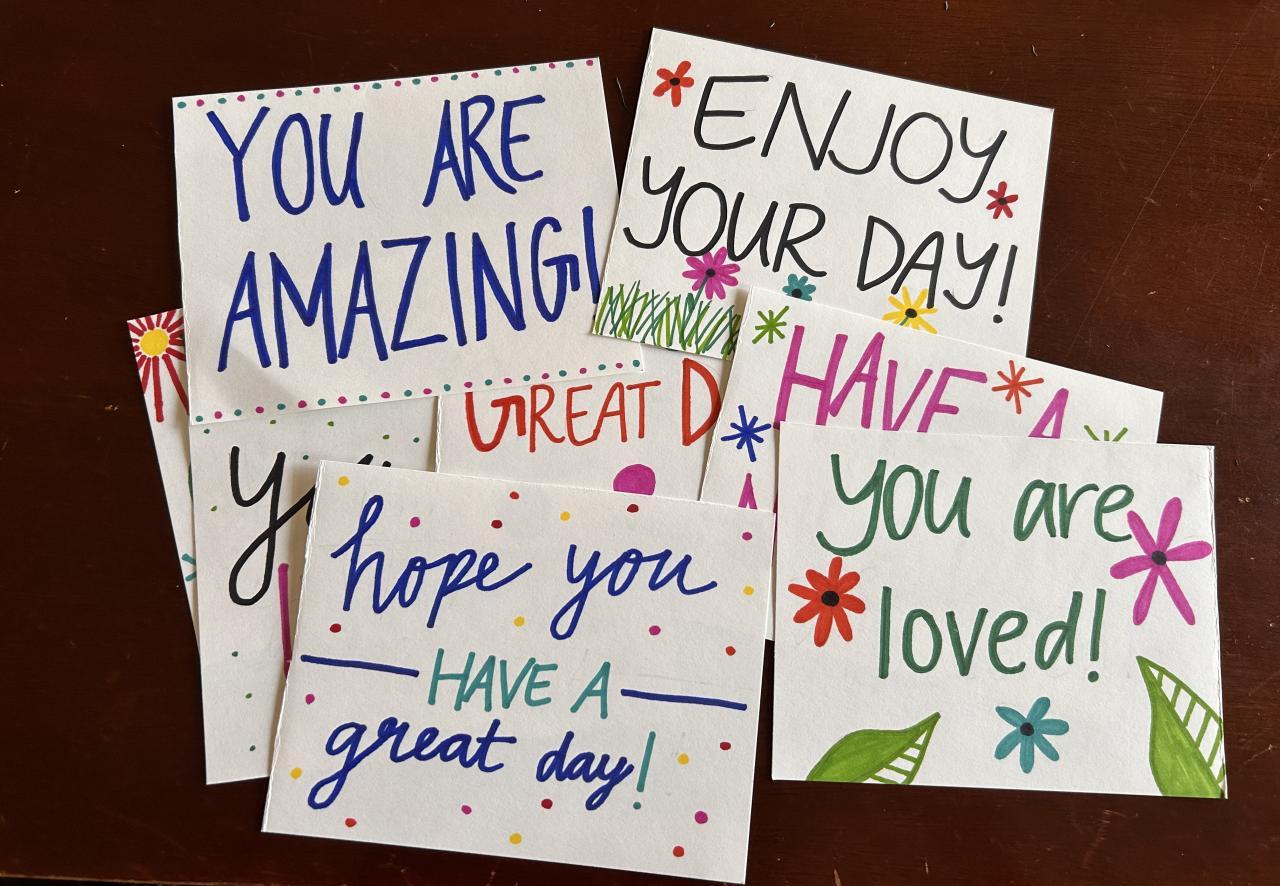 YOU ARE
AMAZING!
ENJOY
YOUR DAY!
GREAT
HAVE A
you are
loved!
hope you
HAVE A
great day!